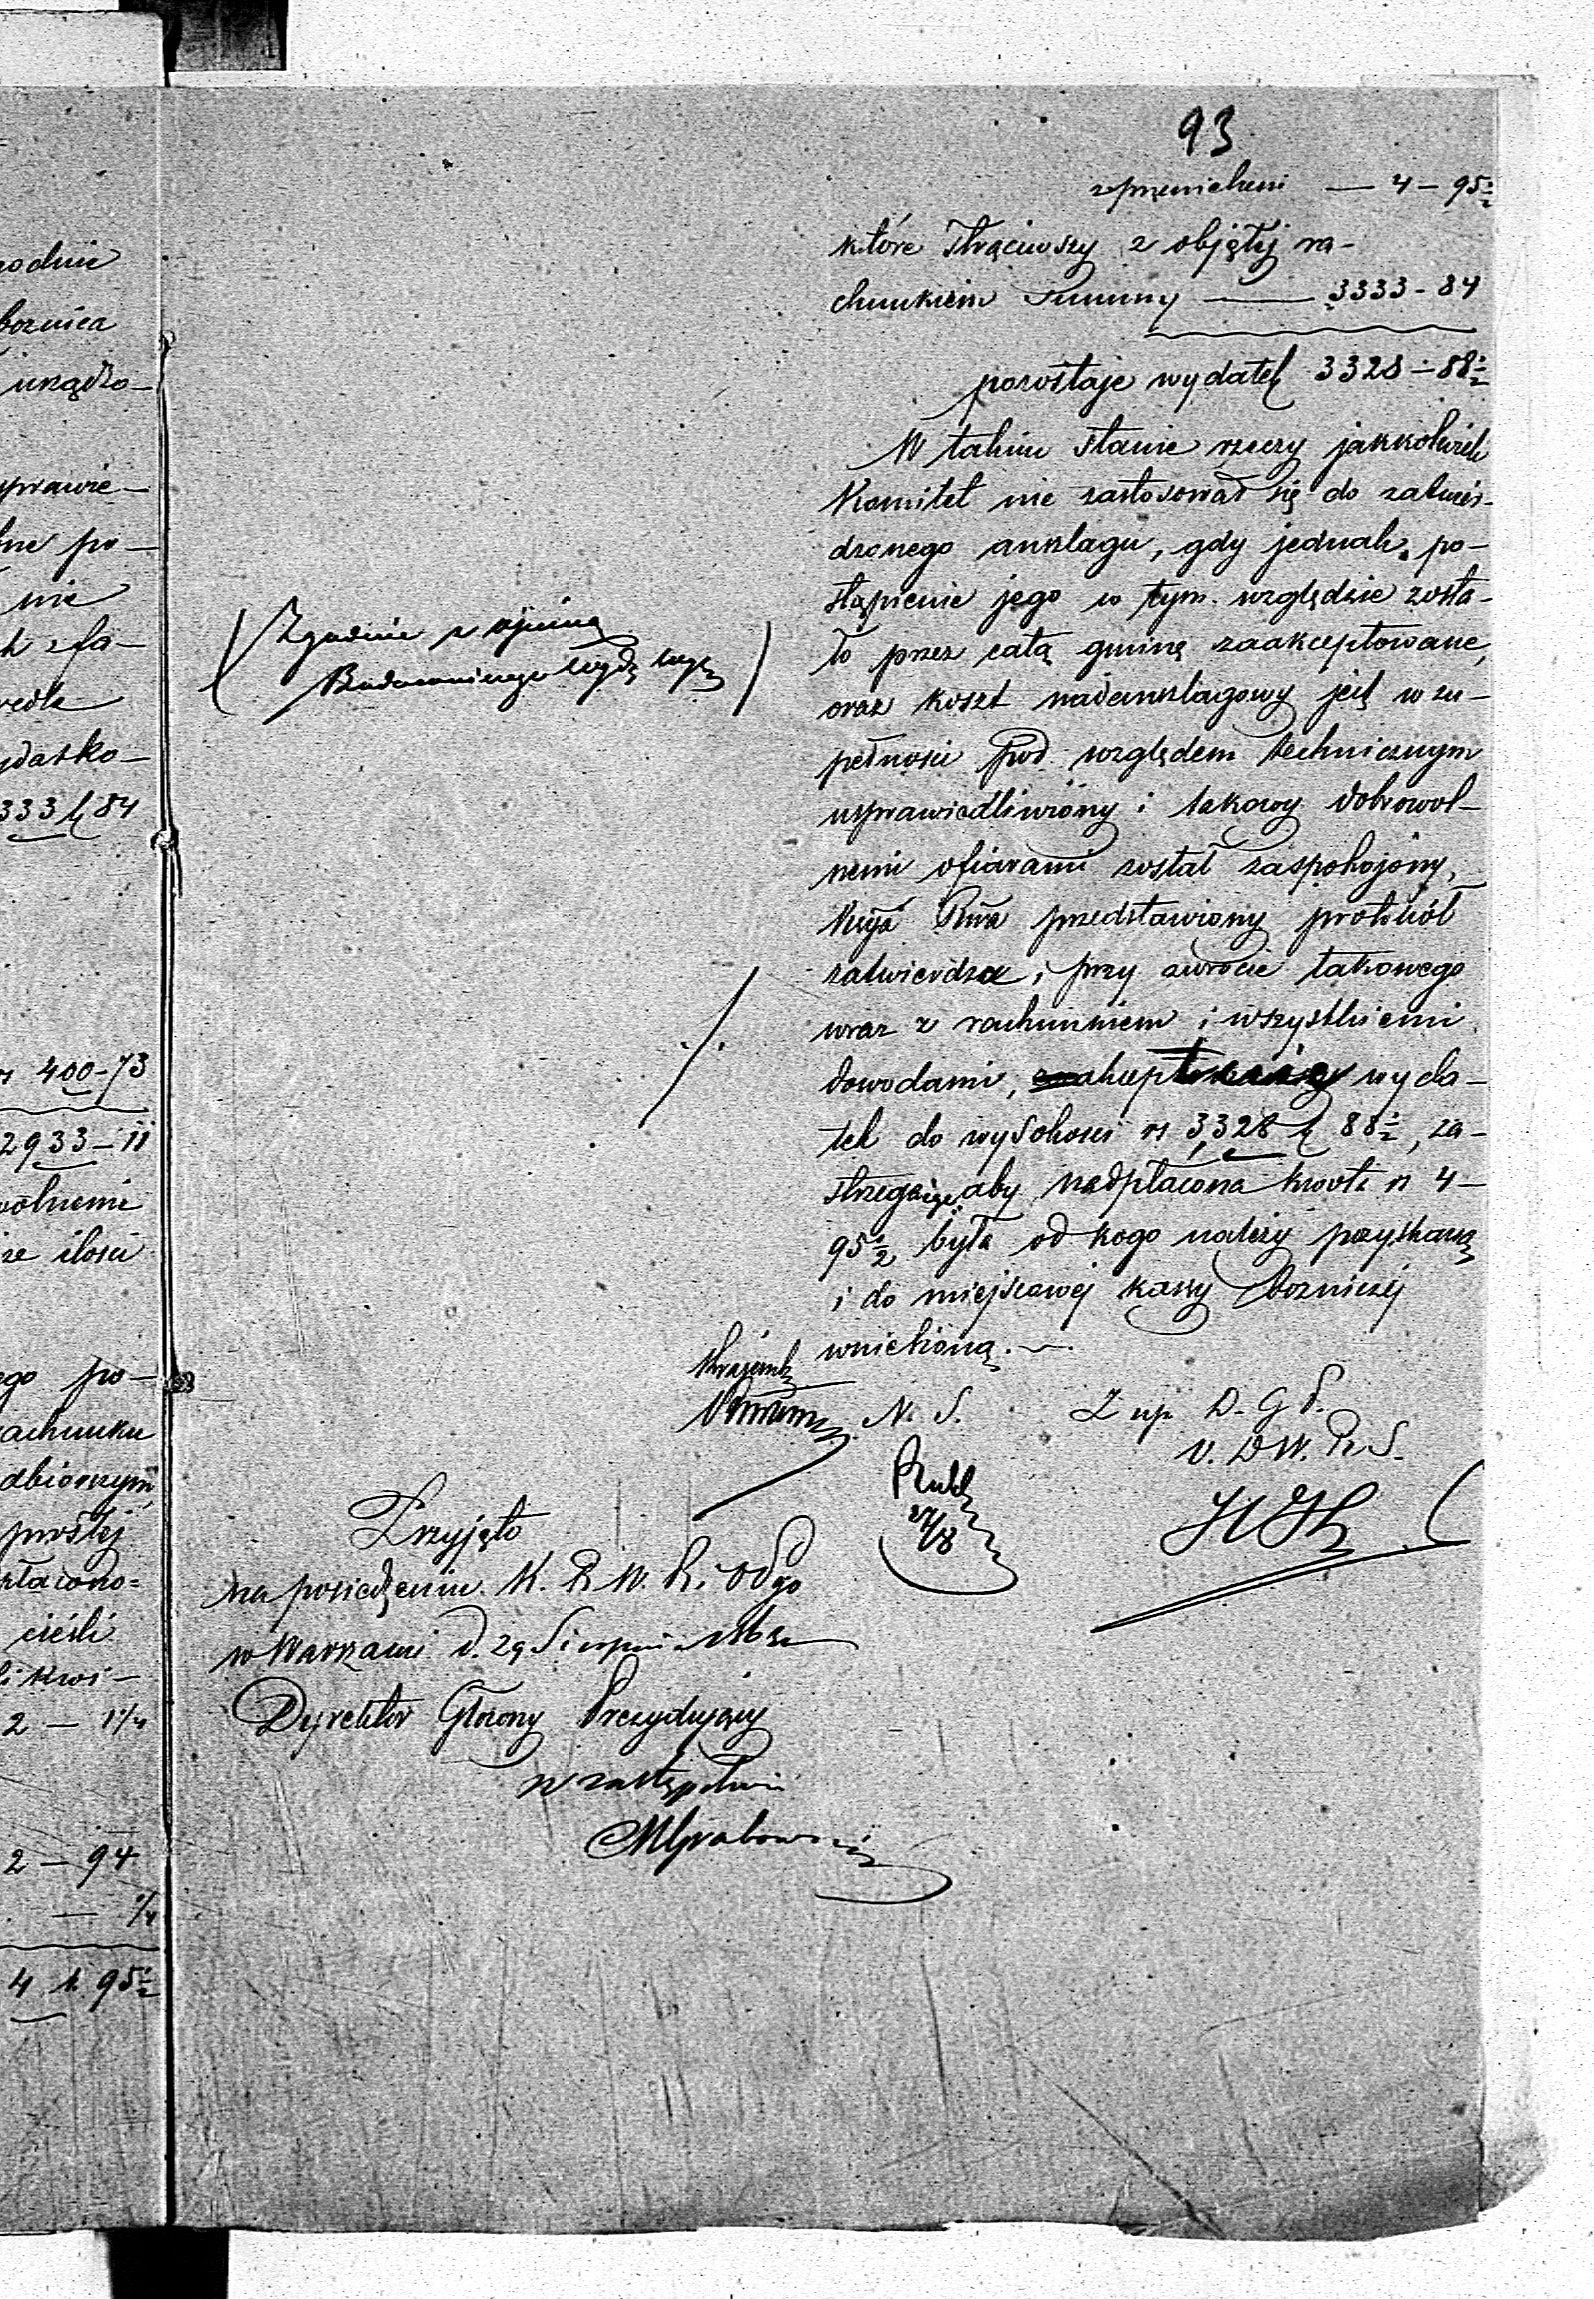 93
z przeniesieni — 4 – 95½
które strąciwszy z objętej ra-
chunkiem Summy — 3333 - 84
pozostaje wydatek 3328 – 88½
W takim stanie rzeczy jakkolwiek
Komitet nie zastosował się do zatwier-
dzonego anszlagu, gdy jednak po-
stąpienie jego w tym względzie zosta-
ło przez całą gminę zaakceptowane,
oraz koszt nadanszlagowy jest w zu-
pełności pod względem technicznym
usprawiedliwiony i takowy dobrowol-
nemi ofiarami został zaspokojony,
przedstawiony protokół
zatwierdza, i przy zwrocie takowego
wraz z rachunkiem i wszystkiemi
dowodami, wyda-
tek do wysokości rs 3,328 k 88½, za-
strzegając aby nadpłacona kwota rs 4 —
95½ była od kogo należy pozyskaną
i do miejscowej kassy Bozniczej
wniesioną.
Zgodnie z opinią
Budowniczego
N. S.
Z up. D. G. P.
V. D W. R S.
27/8
Przyjęto
na posiedzeniu K. R. W. R. odgo
w Warszawie d. 29 Sierpnia
Dyrektor Głowny Prezydujący
w zastępstwie
MGrabowski
rodnie
boznica
urządzo-
sprawie-
po-
nie
k z fa-
wedle
ydatko-
333 k 84
rs 400-73
2933 - 11
wolnemi
ze ilości
ego po-
achunku
dbiorczym
prostej
płacono=
cieśli
likwi-
2 — 1¼
2 — 94
— ¼
4 k. 95½